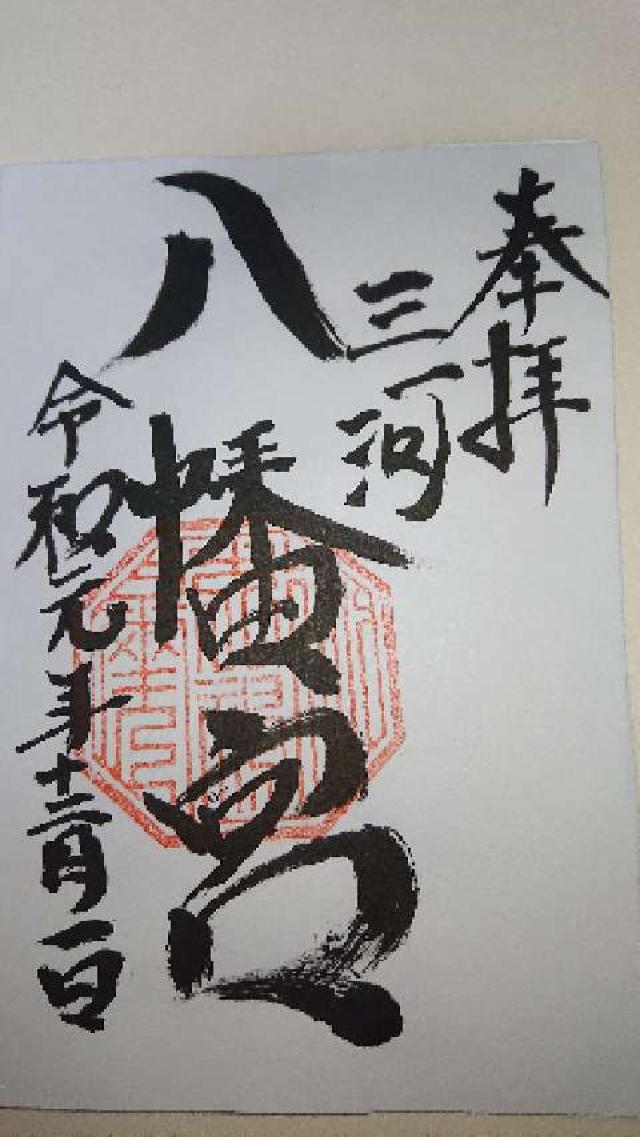 奉拝
三河
八幡宮
令和元年十二月一日